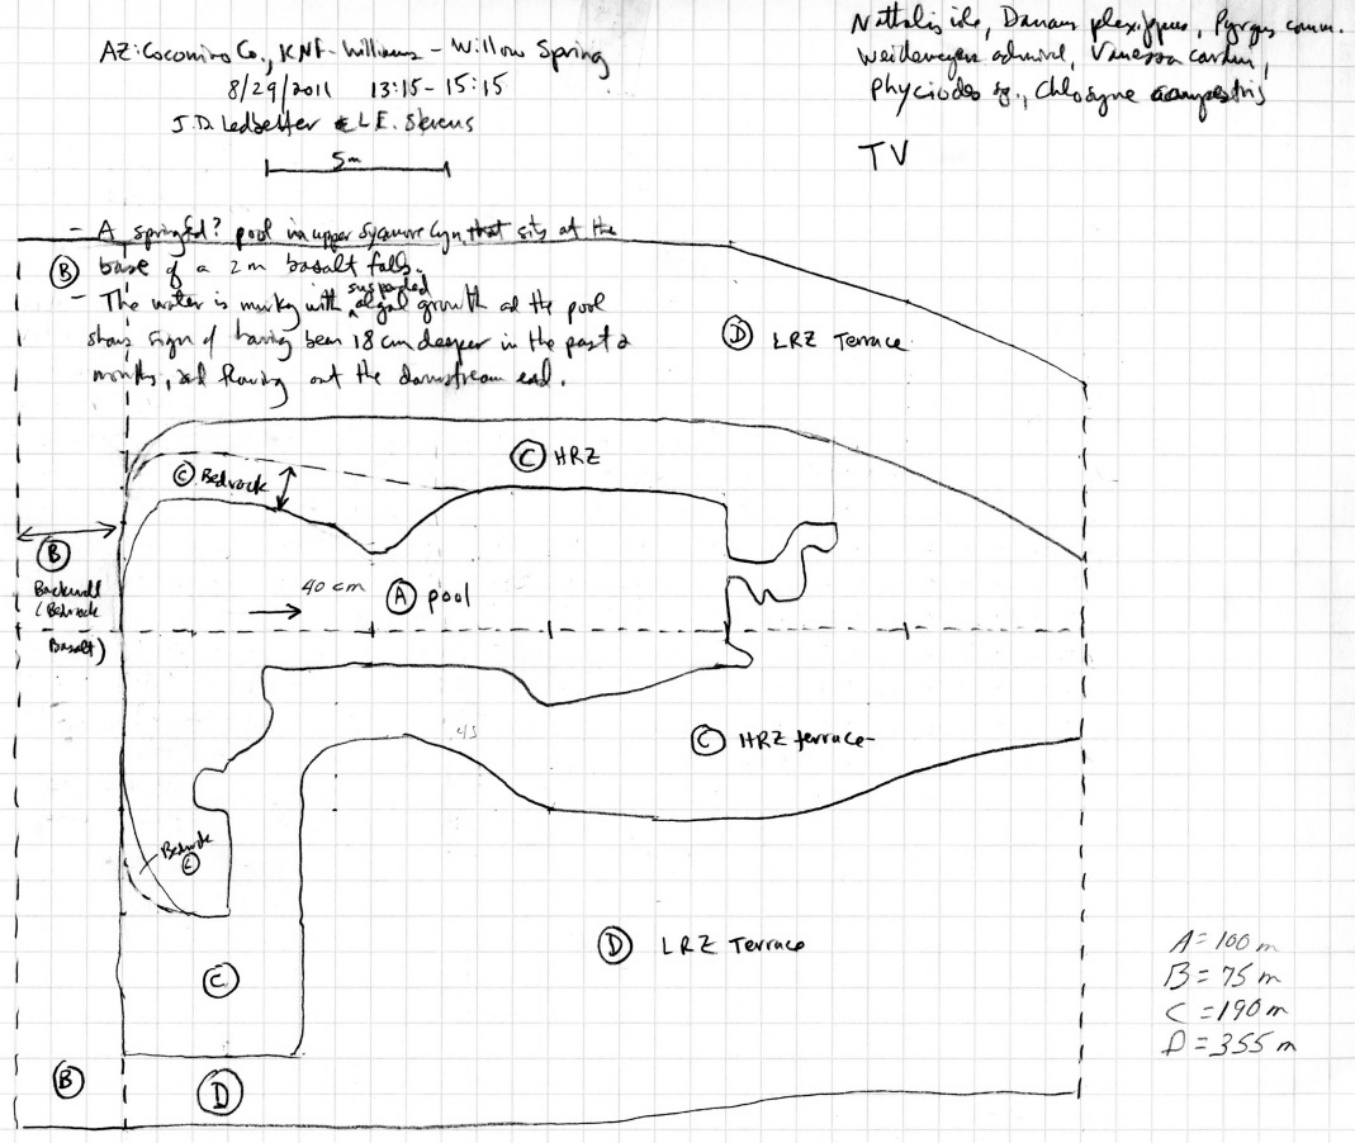 AZ: Coconino Co., KNF-Williams - Willow Spring
8/29/2011 13:15-15:15
J.D. Ledbetter & L.E. Stevens
5m
Nathalis iole, Danaus plexippus, Pyrgus comm.
Weidemeyers admiral, Vanessa cardui,
Phyciodes sp., Chlosyne
TV
- A springfed? pool in upper Sycamore Cyn, that sits at the
B base of a 2 m basalt falls.
- The water is murky with suspended algal growth and the pool
shows sign of having been 18 cm deeper in the past 2
months, and flowing out the downstream end.
D LRZ Terrace
C HRZ
C Bedrock
B
Backwall
(Bedrock
Basalt)
40 cm
A pool
45
C HRZ terrace
Bedrock
C
D LRZ Terrace
C
B
D
A = 100 m
B = 75 m
C = 190 m
D = 355 m